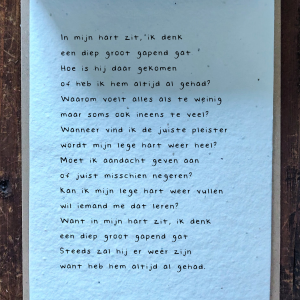 In mijn hart zit, ik denk
een diep groot gapend gat
Hoe is hij daar gekomen
of heb ik hem altijd al gehad?
Waarom voelt alles als te weinig
maar soms ook ineens te veel?
Wanneer vind ik de juiste pleister
wordt mijn lege hart weer heel?
Moet ik aandacht geven aan
of juist misschien negeren?
Kan ik mijn lege hart weer vullen
wil iemand me dat leren?
Want in mijn hart zit, ik denk
een diep groot gapend gat
Steeds zal hij er weer zijn
want heb hem altijd al gehad.